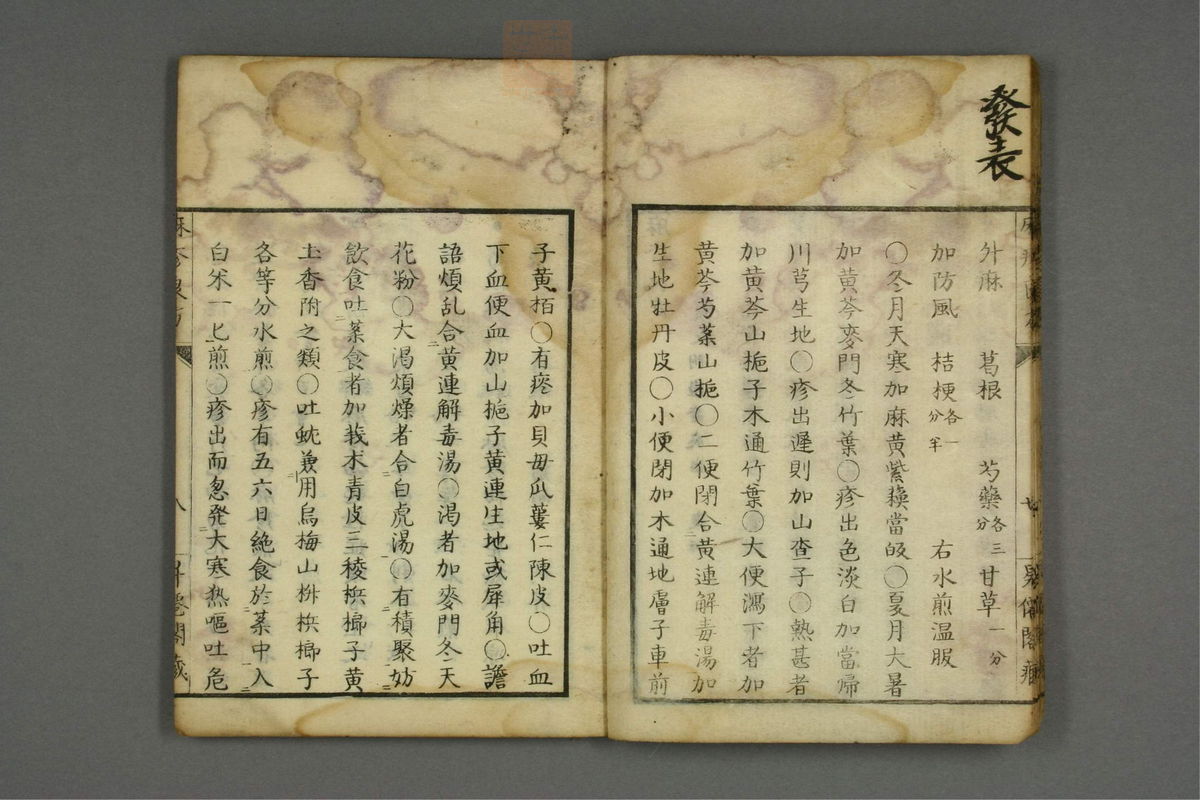 發表
升麻 葛根 芍藥各三分 甘草一分
加防風 桔梗各一分半 右水煎温服
○冬月天寒加麻黄紫蘓當皈○夏月大暑
加黄芩麥門冬竹葉○疹出色淡白加當帰
川芎生地○疹出遲則加山査子○熱甚者
加黄芩山梔子木通竹葉○大便瀉下者加
黄芩芍薬山梔○二便閉合黄連解毒湯加
生地牡丹皮○小便閉加木通地膚子車前
子黄栢○有痰加貝母瓜蔞仁陳皮○吐血
下血便血加山梔子黄連生地或犀角○譫
語煩乱合黄連解毒湯○渇者加麥門冬天
花粉○大渇煩燥者合白虎湯○有積聚妨
飲食吐薬食者加莪朮青皮三稜梹榔子黄
土香附之類○吐蚘兼用烏梅山梹梹榔子
各等分水煎○疹有五六日絶食於薬中入
白米一匕煎○疹出而忽発大寒热嘔吐危